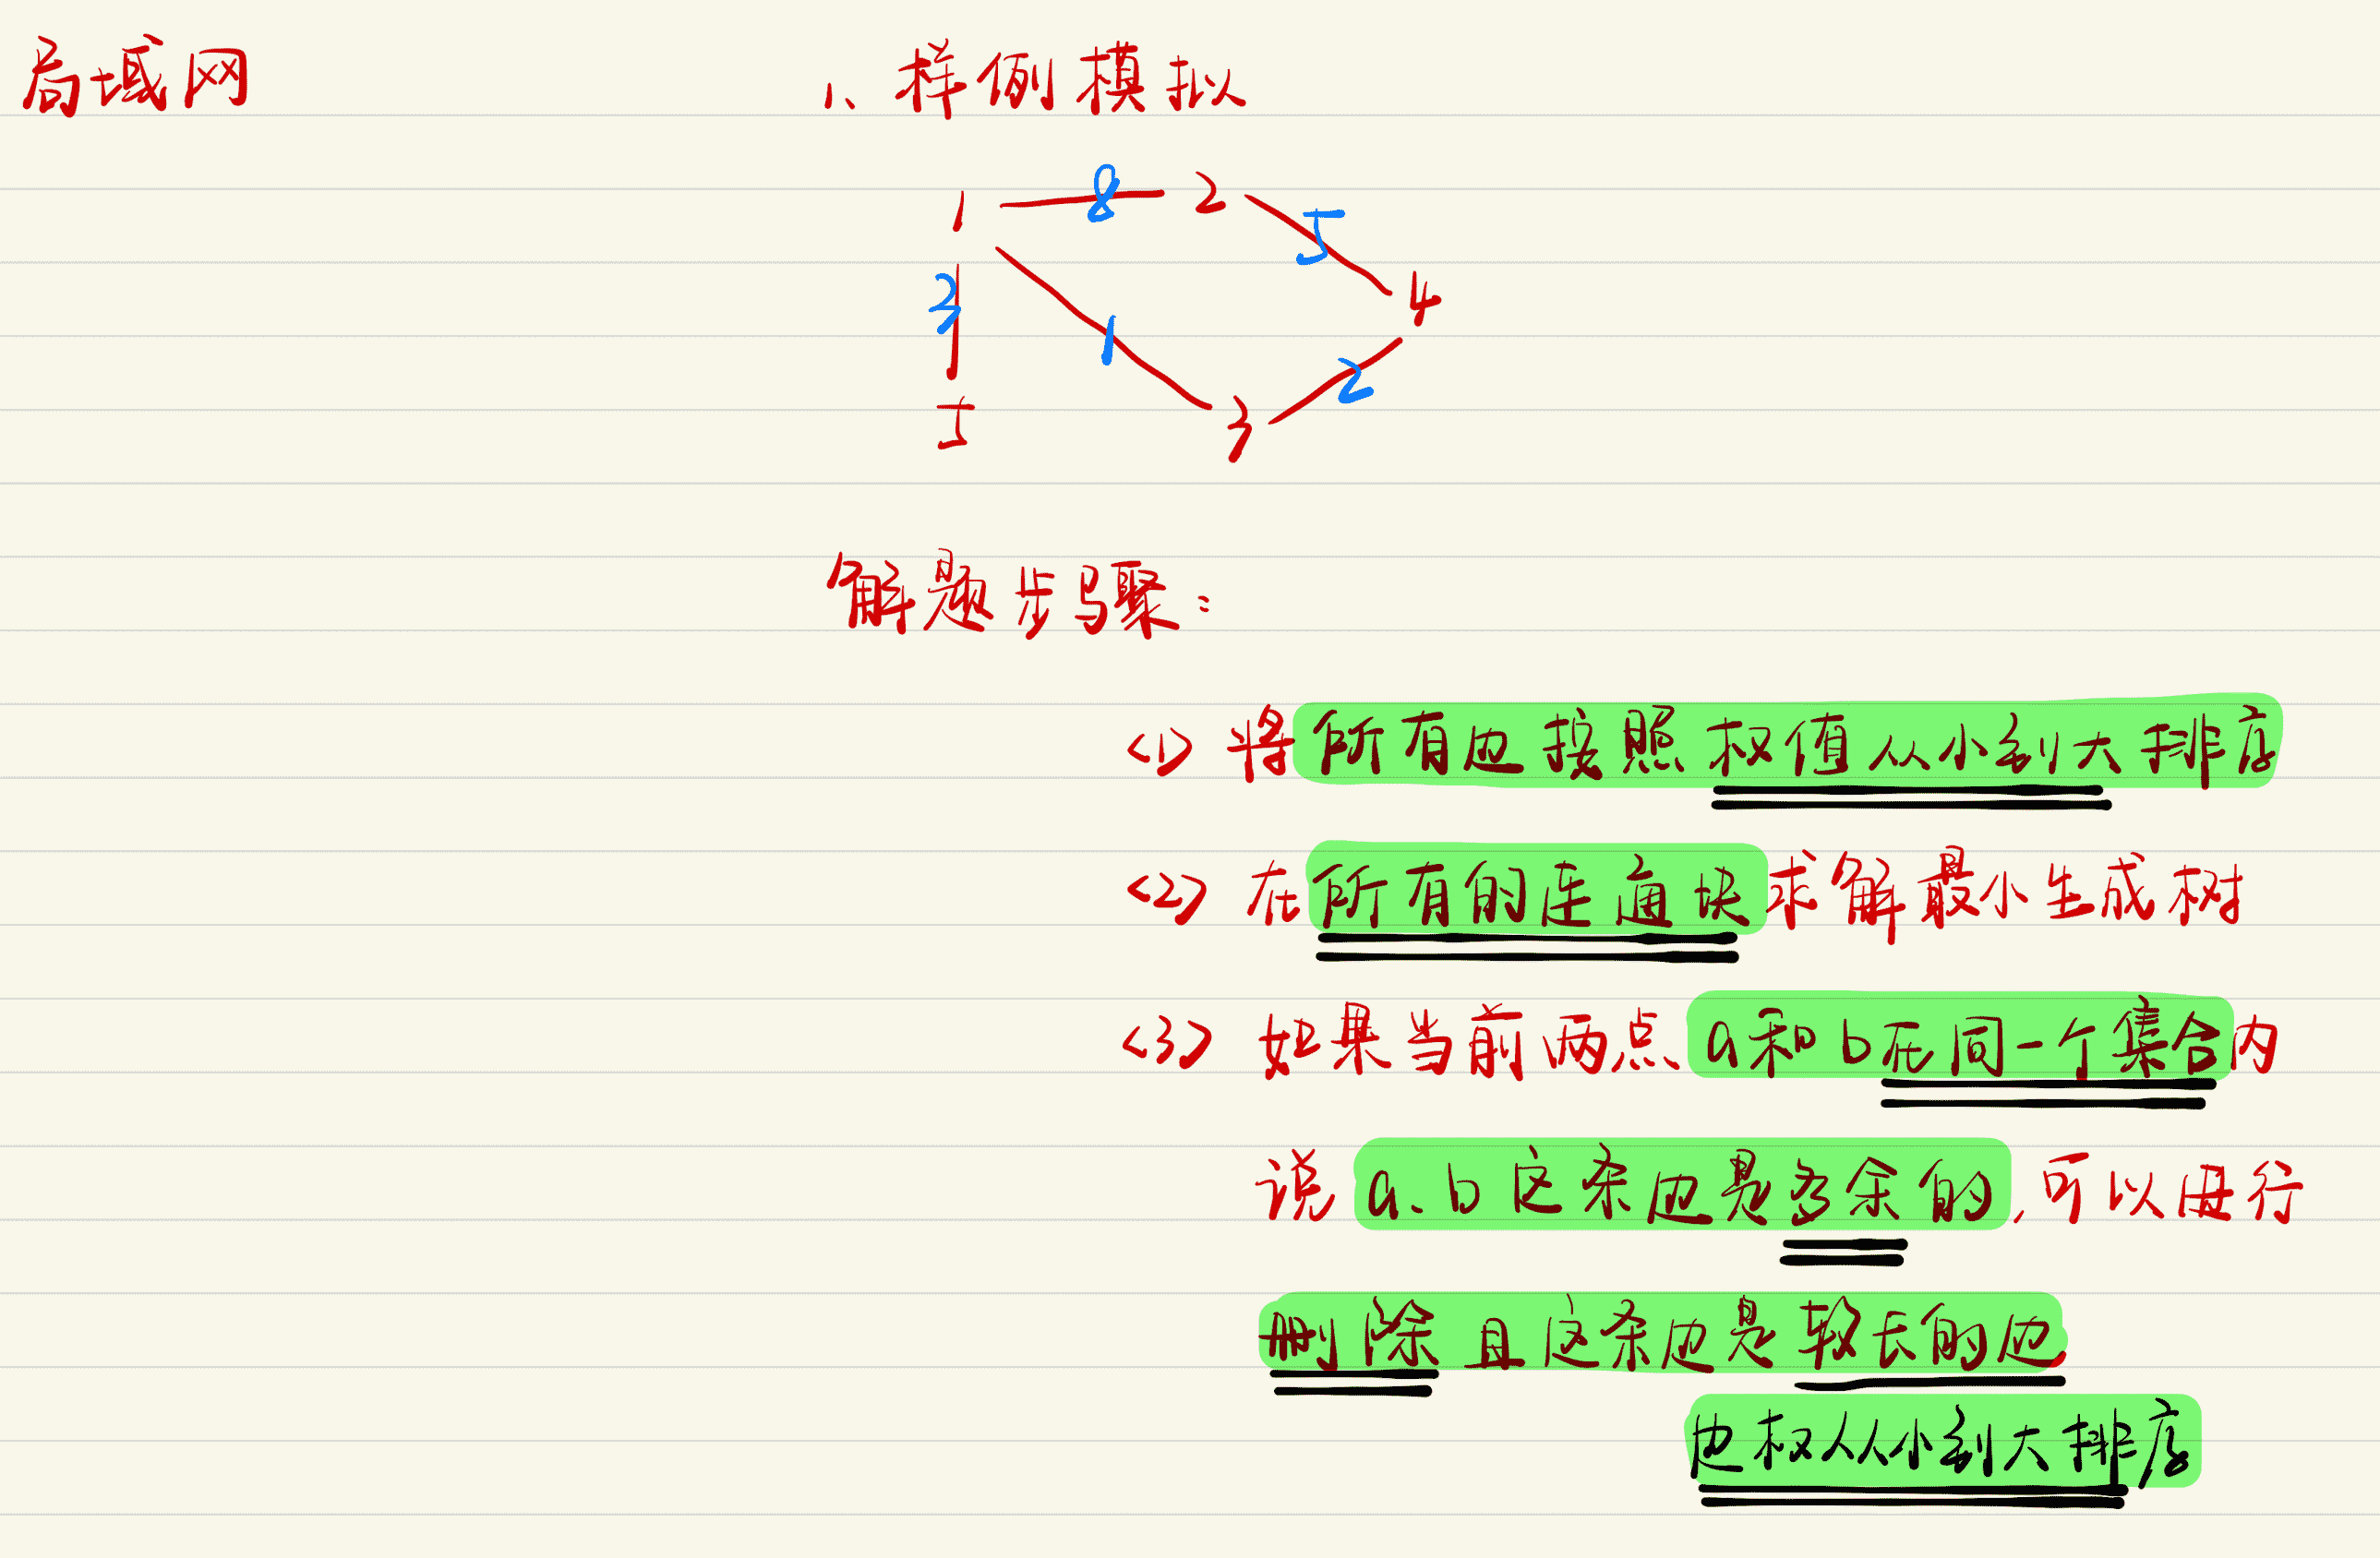 局域网
1、样例模拟
1 8 2
5
3 4
1
2
5 3
解题步骤：
<1> 将所有边按照权值从小到大排序
<2> 在所有的连通块求解最小生成树
<3> 如果当前两点a和b在同一个集合内
说a、b这条边是多余的，可以进行
删除且这条边是较长的边
边权从小到大排序